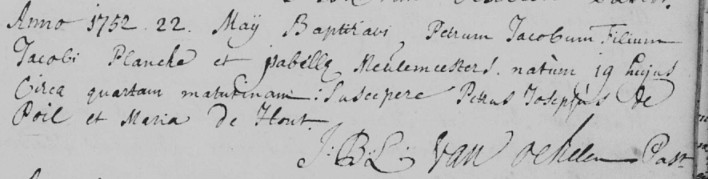 Anno 1752. 22. Maÿ Baptizavi Petrum Jacobum Filium
Jacobi Planche et jsabellæ Meulemeesters. natum 19 hujus
Circa quartam matutinam: Suscepere Petrus Josephus de
Poil et Maria de Hont.
J: B: L: Van Ockelen Past